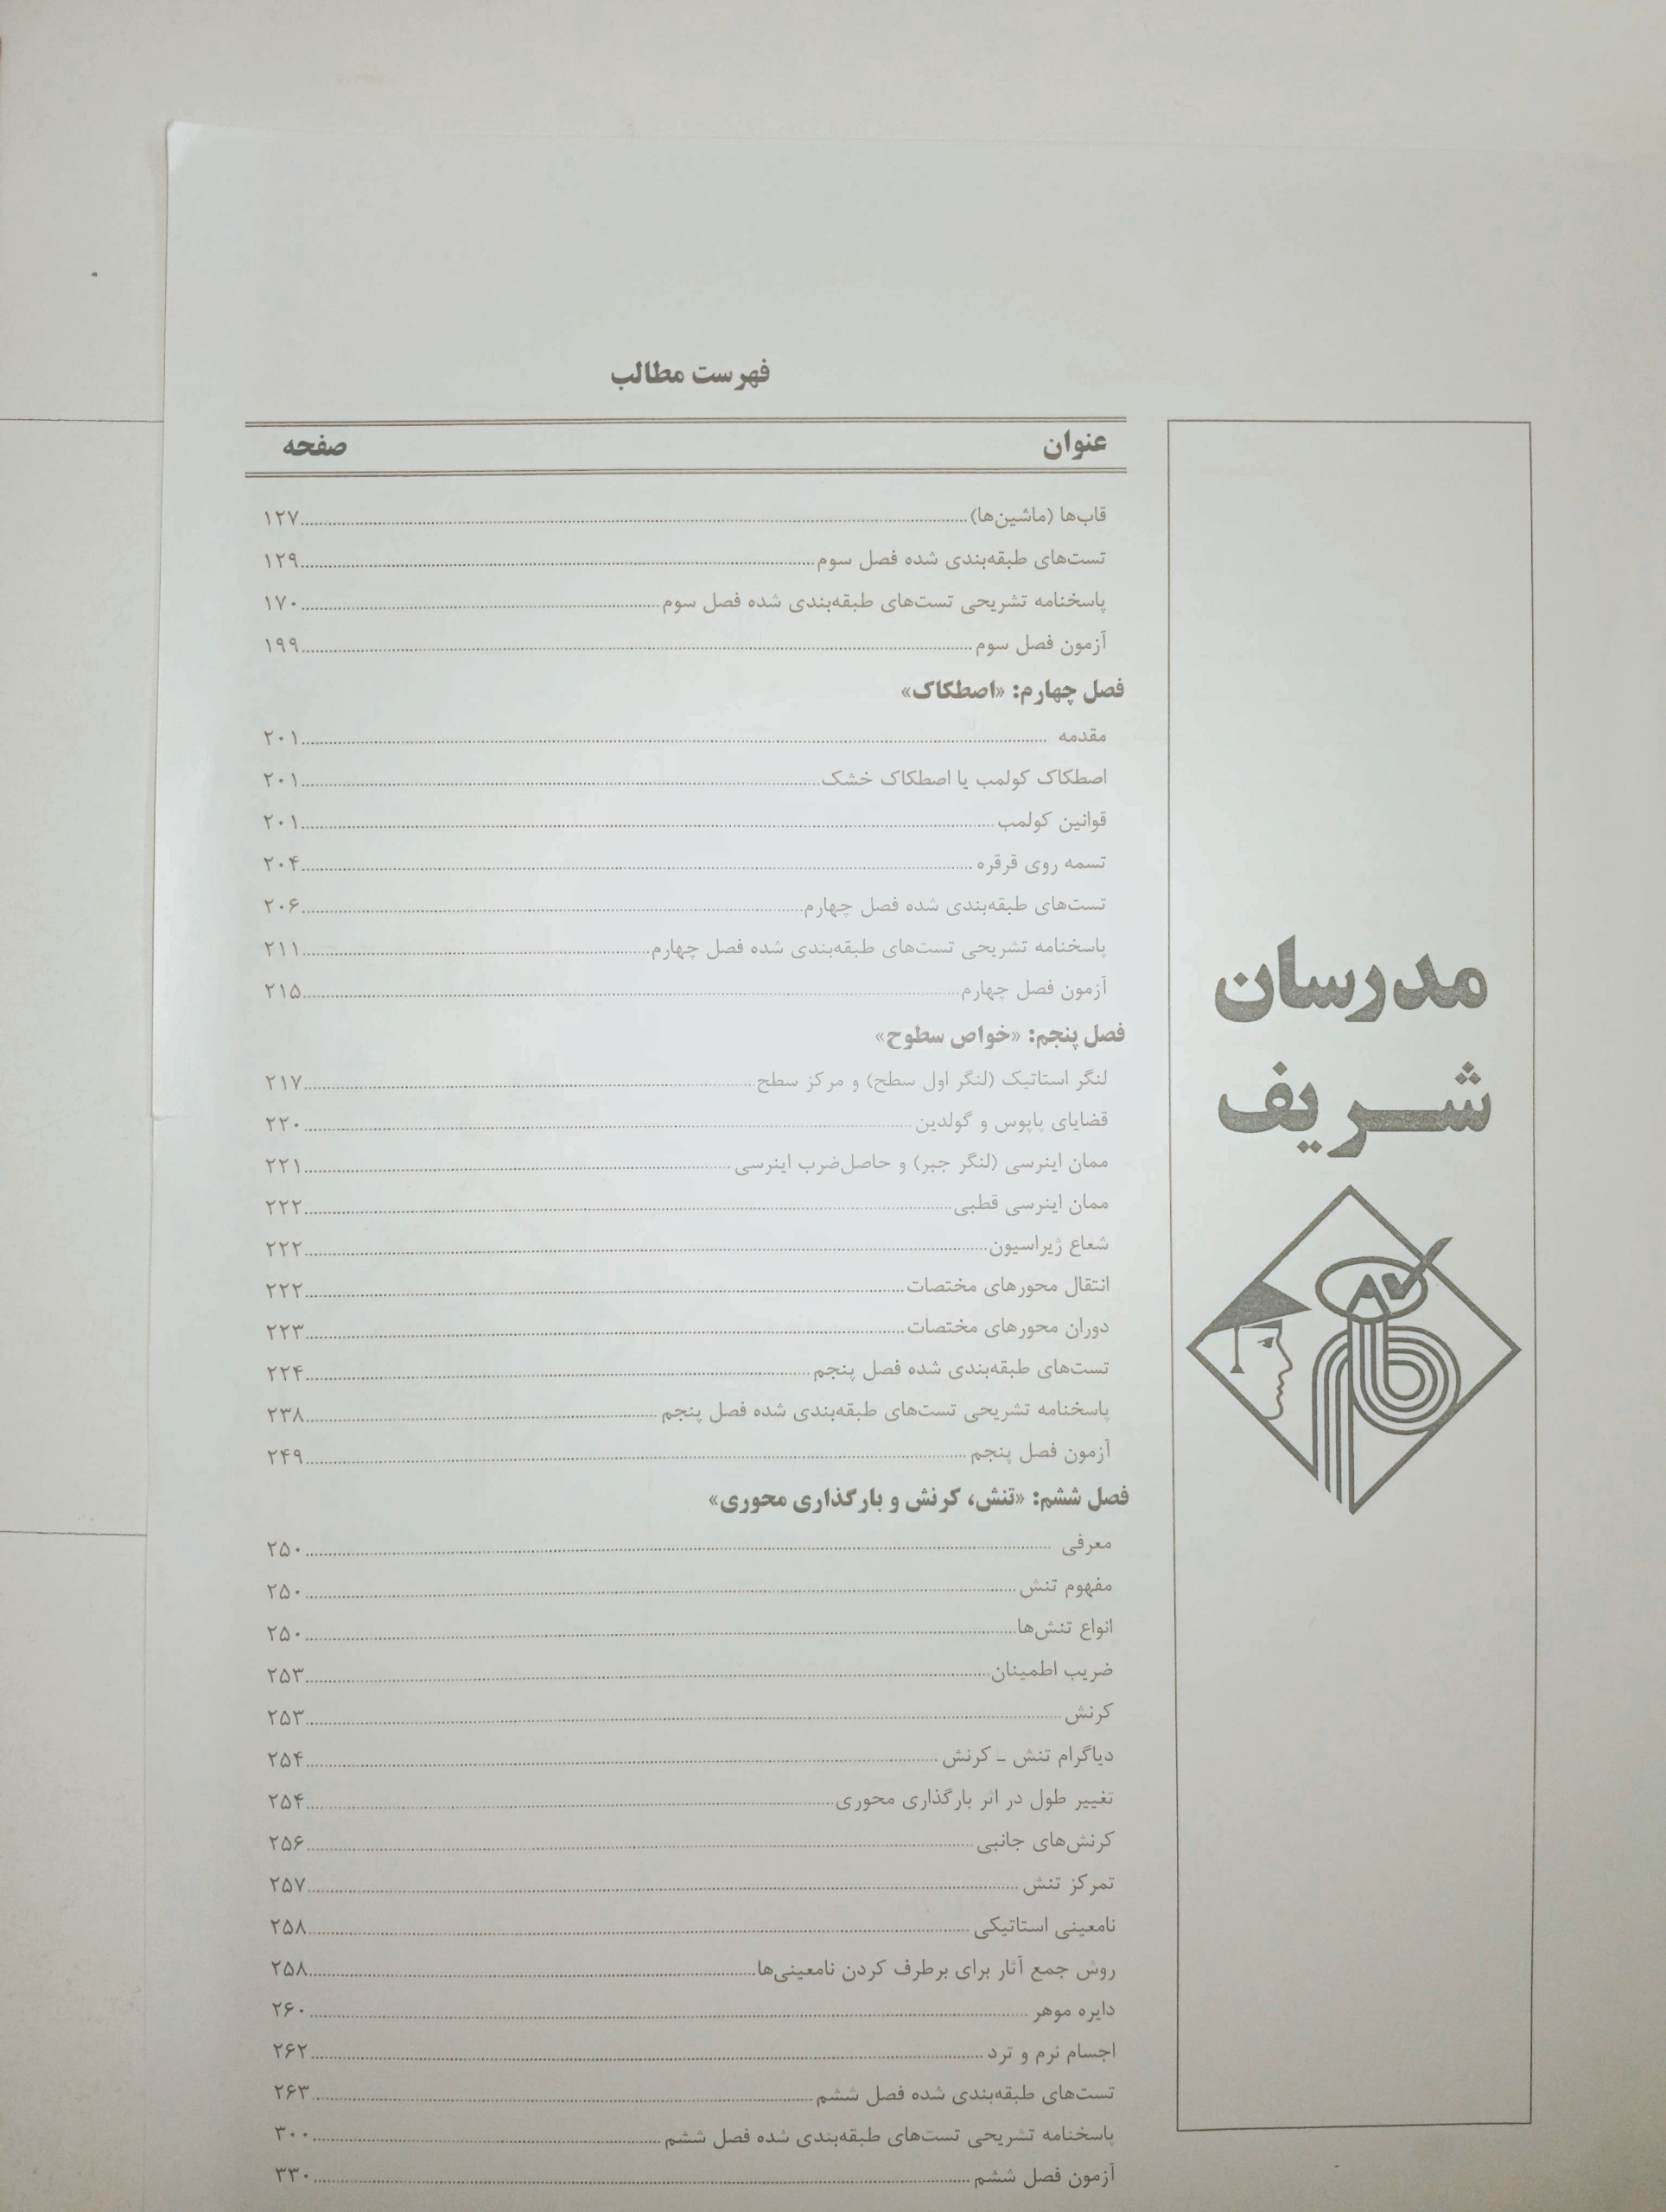 فهرست مطالب
عنوان صفحه
قاب‌ها (ماشین‌ها) ۱۲۷
تست‌های طبقه‌بندی شده فصل سوم ۱۲۹
پاسخنامه تشریحی تست‌های طبقه‌بندی شده فصل سوم ۱۷۰
آزمون فصل سوم ۱۹۹
فصل چهارم: «اصطکاک»
مقدمه ۲۰۱
اصطکاک کولمب یا اصطکاک خشک ۲۰۱
قوانین کولمب ۲۰۱
تسمه روی قرقره ۲۰۴
تست‌های طبقه‌بندی شده فصل چهارم ۲۰۶
پاسخنامه تشریحی تست‌های طبقه‌بندی شده فصل چهارم ۲۱۱
آزمون فصل چهارم ۲۱۵
فصل پنجم: «خواص سطوح»
لنگر استاتیک (لنگر اول سطح) و مرکز سطح ۲۱۷
قضایای پاپوس و گولدین ۲۲۰
ممان اینرسی (لنگر جبر) و حاصل‌ضرب اینرسی ۲۲۱
ممان اینرسی قطبی ۲۲۲
شعاع ژیراسیون ۲۲۲
انتقال محورهای مختصات ۲۲۲
دوران محورهای مختصات ۲۲۳
تست‌های طبقه‌بندی شده فصل پنجم ۲۲۴
پاسخنامه تشریحی تست‌های طبقه‌بندی شده فصل پنجم ۲۳۸
آزمون فصل پنجم ۲۴۹
فصل ششم: «تنش، کرنش و بارگذاری محوری»
معرفی ۲۵۰
مفهوم تنش ۲۵۰
انواع تنش‌ها ۲۵۰
ضریب اطمینان ۲۵۳
کرنش ۲۵۳
دیاگرام تنش ـ کرنش ۲۵۴
تغییر طول در اثر بارگذاری محوری ۲۵۴
کرنش‌های جانبی ۲۵۶
تمرکز تنش ۲۵۷
نامعینی استاتیکی ۲۵۸
روش جمع آثار برای برطرف کردن نامعینی‌ها ۲۵۸
دایره موهر ۲۶۰
اجسام نرم و ترد ۲۶۲
تست‌های طبقه‌بندی شده فصل ششم ۲۶۳
پاسخنامه تشریحی تست‌های طبقه‌بندی شده فصل ششم ۳۰۰
آزمون فصل ششم ۳۳۰
مدرسان
شریف